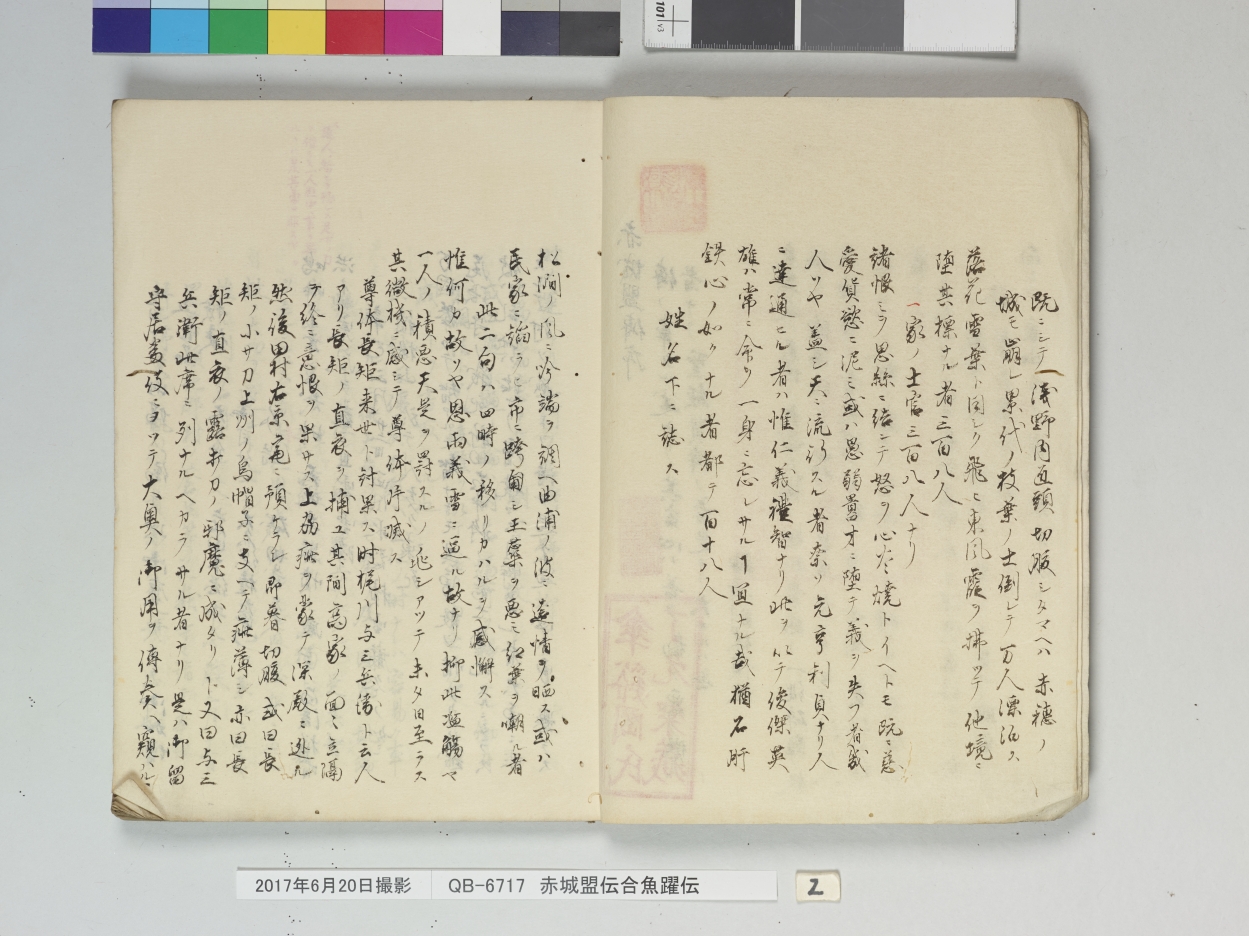 既ニシテ浅野内匠頭切腹シタマヘハ赤穂ノ
城モ崩レ累代ノ枝葉ノ士倒レテ万人漂泊ス
落花雪葉ト同シク飛ヒ東風霞ヲ拂ツテ他境ニ
堕其操ナル者三百八人
一家ノ士官三百八人ナリ
諸恨ミヲ思絲ニ結ンテ怒ヲ心火ニ焼トイヘトモ既ニ慈
愛貨慾ニ泥ミ或ハ愚弱舊才ニ堕テ義ヲ失フ者幾
人ソヤ蓋シ天ニ流行スル者奈ソ元亨利貞ナリ人
ニ達通セル者ハ惟仁義禮智ナリ此ヲ以テ俊傑英
雄ハ常ニ命ヲ一身ニ忘レサルヿ宜ナル哉猶石肝
鉄心ノ如クナル者都テ百十八人
姓名下ニ誌ス
松澗ノ風ニ吟端ヲ調ヘ曲浦ノ波ニ遠情ヲ晒ス或ハ
民家ニ謟ラヒ市ニ跨匍シ玉藁ヲ悪ミ紅葉ヲ嘲ル者
此二句ハ四時ノ移リカハルヲ感慨ス
惟何カ故ソヤ恩雨義雪ニ逼ル故ナリ抑此濫觴ヤ
一人ノ積悪天是ヲ罸スルノ兆シアツテ未タ日至ラス
其微機ニ感シテ尊体序滅ス
尊体長矩来世ト討果ス時梶川与三兵衛ト云人
アリ長矩ノ直衣ヲ捕ユ其間高家ノ面々立隔
ヲ終ニ意恨ヲ果サス上野疵ヲ蒙テ深殿ニ逃ル
然後田村右京亮ニ預ケラレ即暮切腹或曰長
矩ノ小サ刀上野ノ烏帽子ニ支ヘテ疵薄シ亦曰長
矩ノ直衣ノ露打刀ノ邪魔ニ成タリト又曰与三
兵衛此席ニ列ナルヘカラサル者ナリ是ハ御留
守居ヨツテ大奥ノ御用ヲ傳奏ヘ窺ハル
2017年6月20日撮影
QB-6717 赤城盟伝合魚躍伝
2